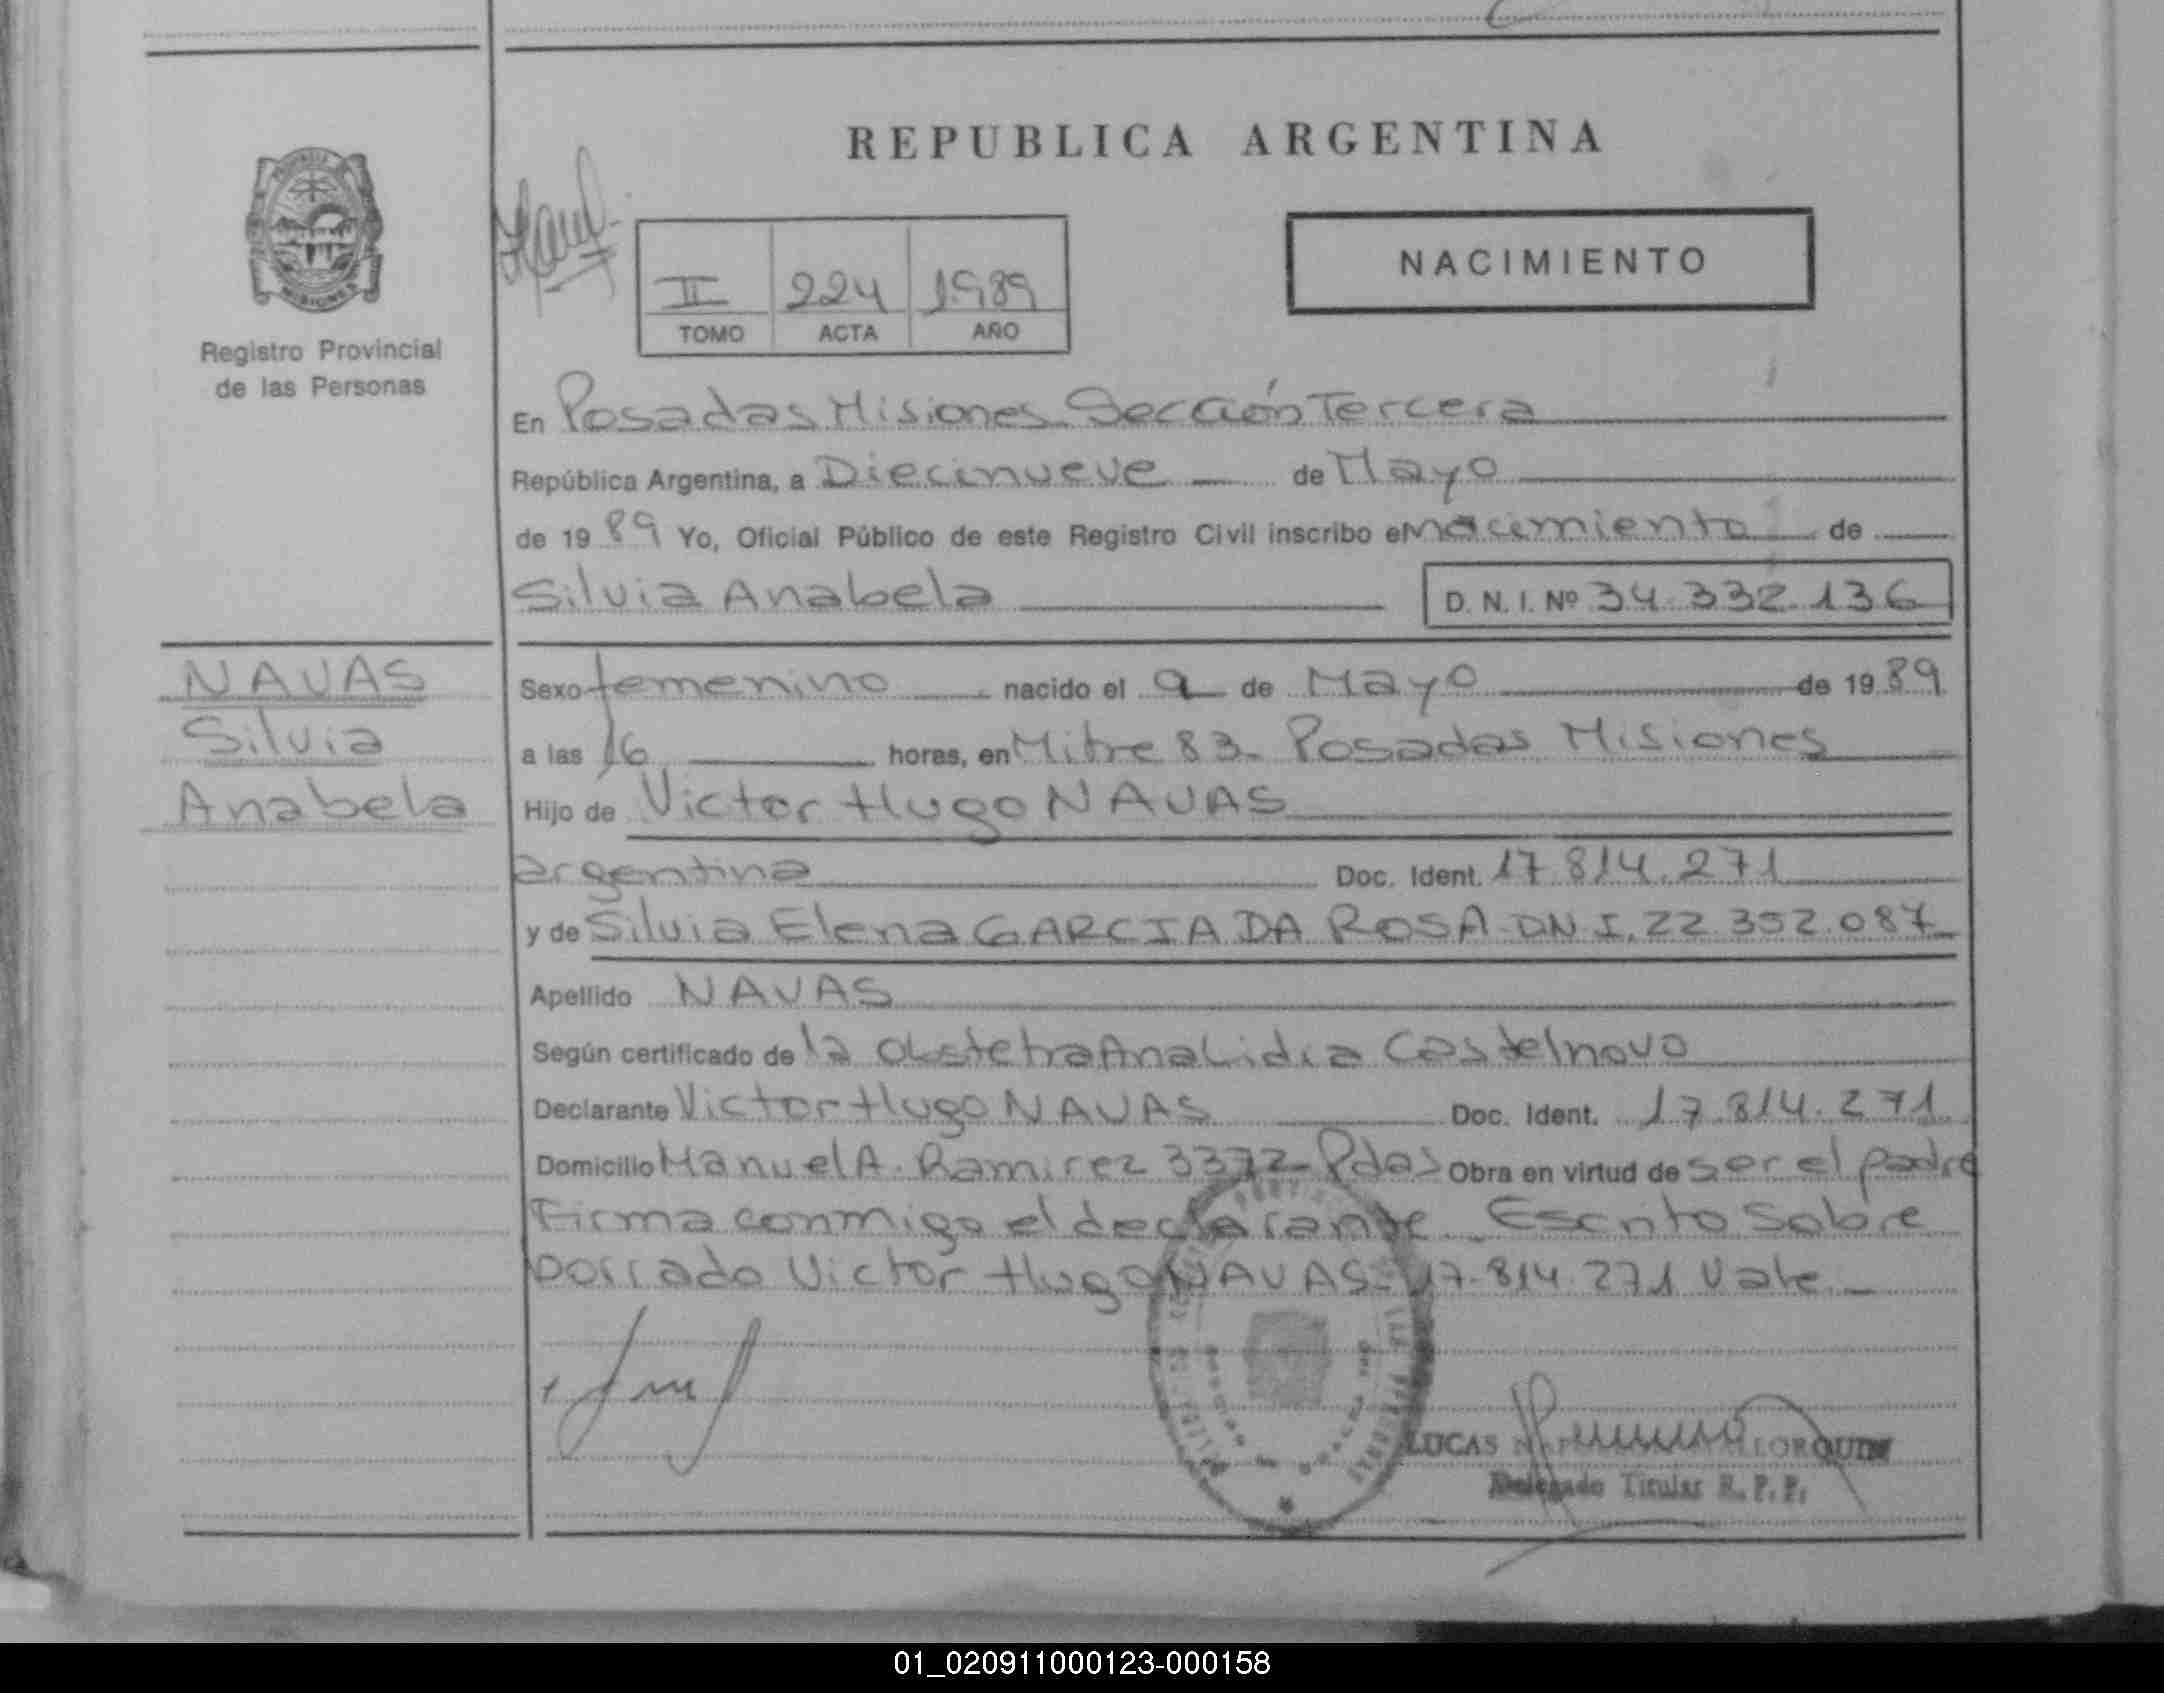 REPUBLICA ARGENTINA
NACIMIENTO
II 224 1989
TOMO ACTA AÑO
PROVINCIA
MISIONES
Registro Provincial
de las Personas
En Posadas Misiones Sección Tercera
República Argentina, a Diecinueve de Mayo
de 1989 Yo, Oficial Público de este Registro Civil inscribo el nacimiento de
Silvia Anabela D. N. I. Nº 34.332.136
NAVAS
Silvia
Anabela
Sexo femenino nacido el 9 de Mayo de 1989
a las 16 horas, en Mitre 83- Posadas Misiones
Hijo de Victor Hugo NAVAS
argentina Doc. Ident. 17.814.271
y de Silvia Elena GARCIA DA ROSA-DN I. 22.352.087
Apellido NAVAS
Según certificado de la obstetra Ana Lidia Castelnovo
Declarante Victor Hugo NAVAS Doc. Ident. 17.814.271
Domicilio Manuel A. Ramirez 3372- Pdas Obra en virtud de ser el padre
Firma conmigo el declarante- Escrito Sobre
borrado Victor Hugo NAVAS- 17.814.271 Vale-
LUCAS
Delegado Titular R. P. P.
01_020911000123-000158